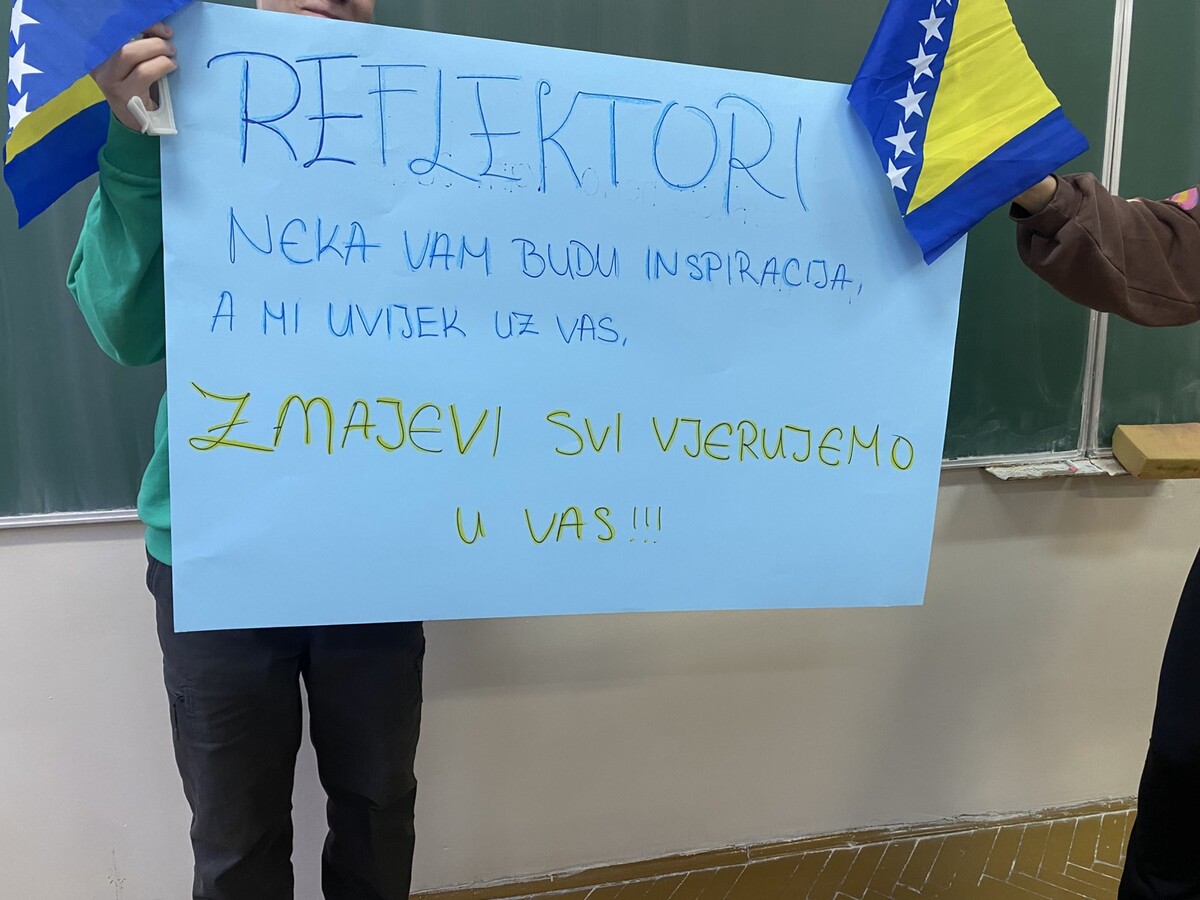 REFLEKTORI
NEKA VAM BUDU INSPIRACIJA,
A MI UVIJEK UZ VAS,
ZMAJEVI SVI VJERUJEMO
U VAS!!!